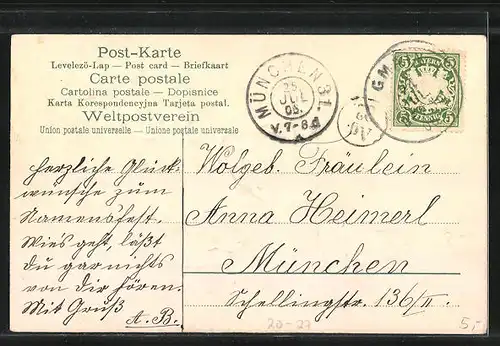 Post-Karte
Levelezö-Lap — Post card — Briefkaart
Carte postale
Cartolina postale — Dopisnice
Karta Korespondencyjna Tarjeta postal.
Weltpostverein
Union postale universelle — Unione postale universale
MÜNCHEN 31.
25
JUL
05.
V. 7-8
BAYERN
5 5
PFENNIG
Herzliche Glück-
wünsche zum
Namensfest.
Wie's geht, läßt
Du gar nichts
von Dir hören.
Mit Gruß
A. B.
Wolgeb. Fräulein
Anna Heimerl
München
Schellingstr. 136/II.
20-27
5,-